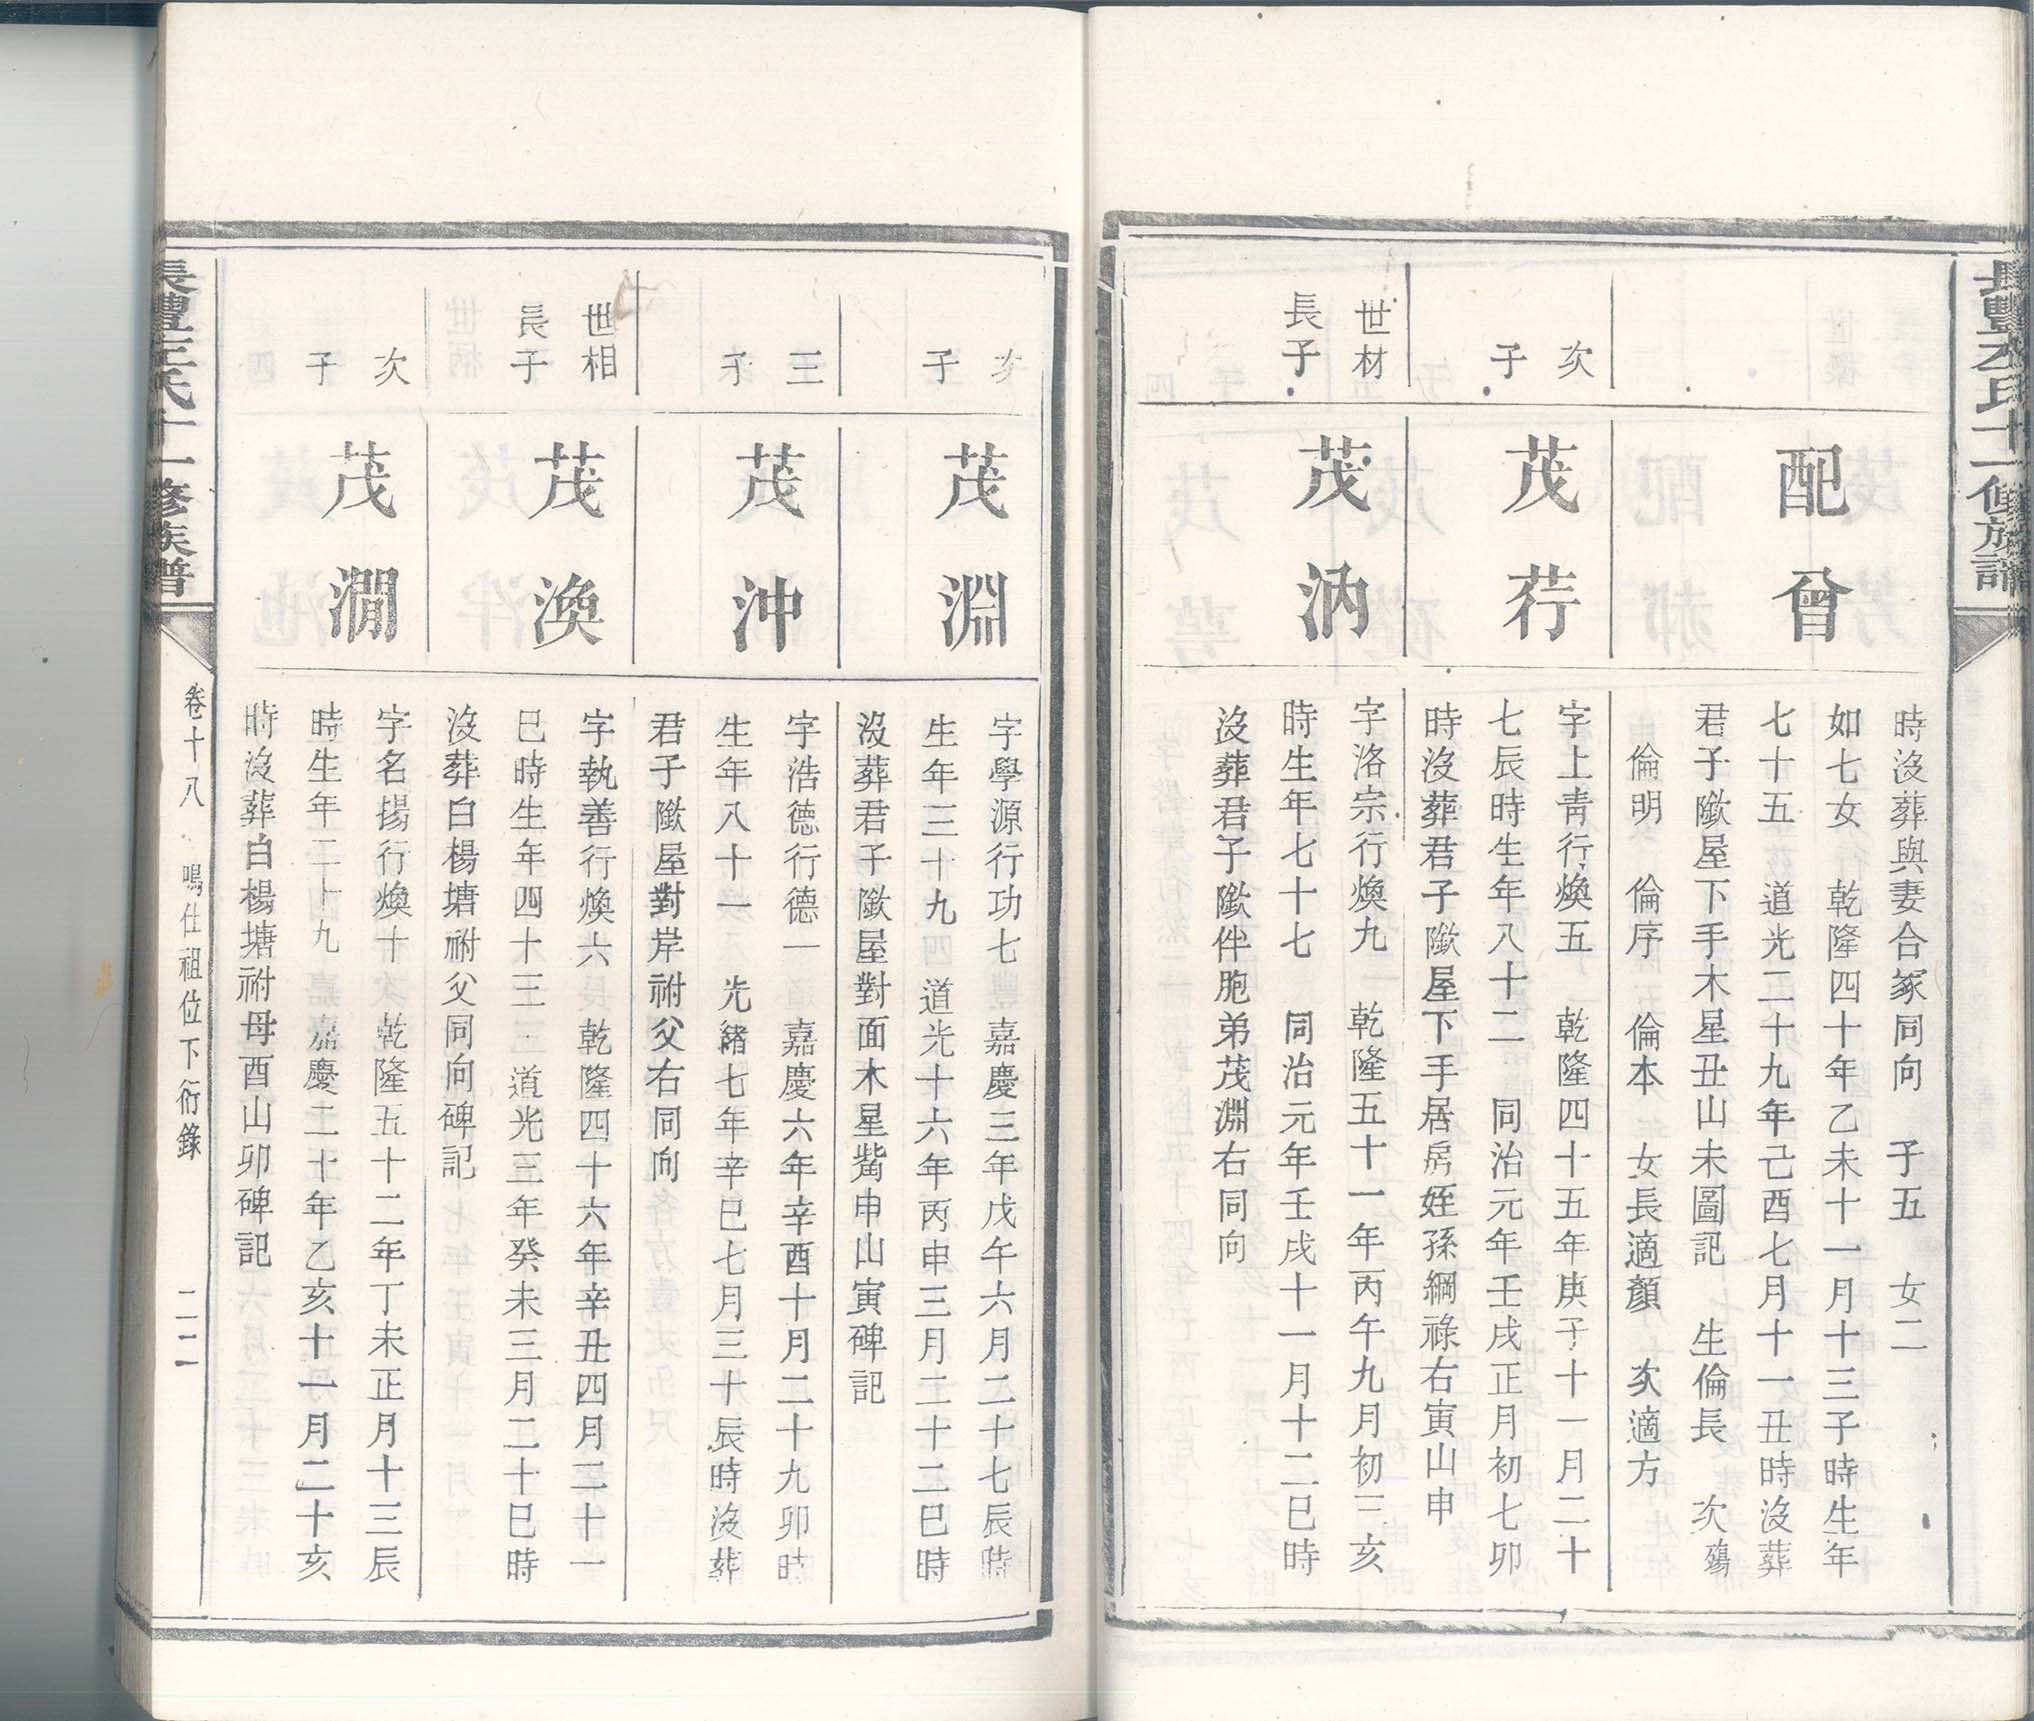 時沒葬與妻合冢同向　子五　女二
配曾
如七女　乾隆四十年乙未十一月十三子時生年
七十五　道光二十九年己酉七月十一丑時沒葬
君子歘屋下手木星丑山未圖記　生倫長　次殤
倫明　倫序　倫本　女長適顏　次適方
次子
茂荇
字上青行煥五　乾隆四十五年庚子十一月二十
七辰時生年八十二　同治元年壬戌正月初七卯
時沒葬君子歘屋下手居房姪孫綱祿右寅山申
世材
長子
茂汭
字洛宗行煥九　乾隆五十一年丙午九月初三亥
時生年七十七　同治元年壬戌十一月十二巳時
沒葬君子歘伴胞弟茂淵右同向
次子
茂淵
字學源行功七　嘉慶三年戊午六月二十七辰時
生年三十九　道光十六年丙申三月二十二巳時
沒葬君子歘屋對面木星嘴申山寅碑記
三子
茂沖
字浩德行德一　嘉慶六年辛酉十月二十九卯時
生年八十一　光緒七年辛巳七月三十辰時沒葬
君子歘屋對岸祔父右同向
世相
長子
茂渙
字執善行煥六　乾隆四十六年辛丑四月二十一
巳時生年四十三　道光三年癸未三月二十巳時
沒葬白楊塘祔父同向碑記
次子
茂澗
字名揚行煥十　乾隆五十二年丁未正月十三辰
時生年二十九　嘉慶二十年乙亥十一月二十亥
時沒葬白楊塘祔母酉山卯碑記
卷十八　鳴仕祖位下衍錄　二二